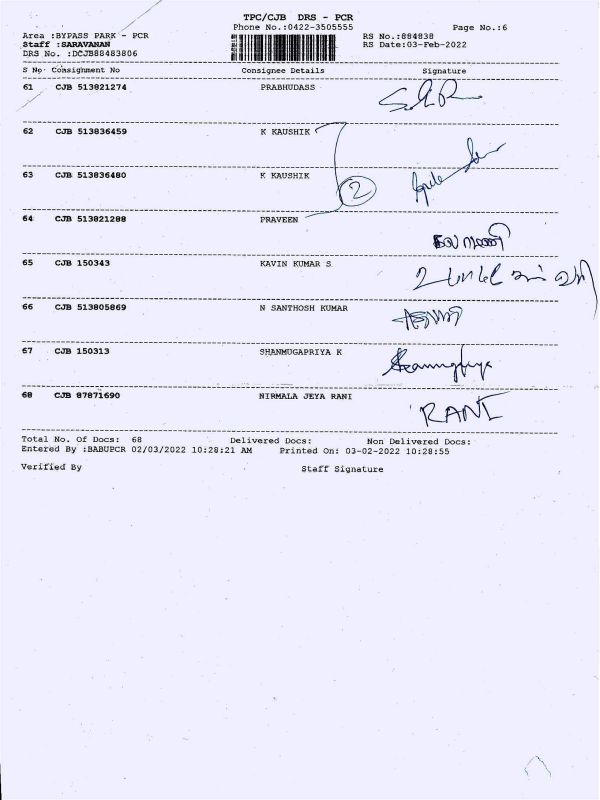 TPC/CJB DRS - PCR
Phone No.:0422-3505555 Page No.:6
Area :BYPASS PARK - PCR RS No.:884838
Staff :SARAVANAN RS Date:03-Feb-2022
DRS No. :DCJB88483806
S No Consignment No Consignee Details Signature
61 CJB 513821274 PRABHUDASS
62 CJB 513836459 K KAUSHIK
2
63 CJB 513836480 K KAUSHIK
64 CJB 513821288 PRAVEEN
65 CJB 150343 KAVIN KUMAR S
66 CJB 513805869 N SANTHOSH KUMAR
67 CJB 150313 SHANMUGAPRIYA K
68 CJB 87871690 NIRMALA JEYA RANI RANI
Total No. Of Docs: 68 Delivered Docs: Non Delivered Docs:
Entered By :BABUPCR 02/03/2022 10:28:21 AM Printed On: 03-02-2022 10:28:55
Verified By Staff Signature